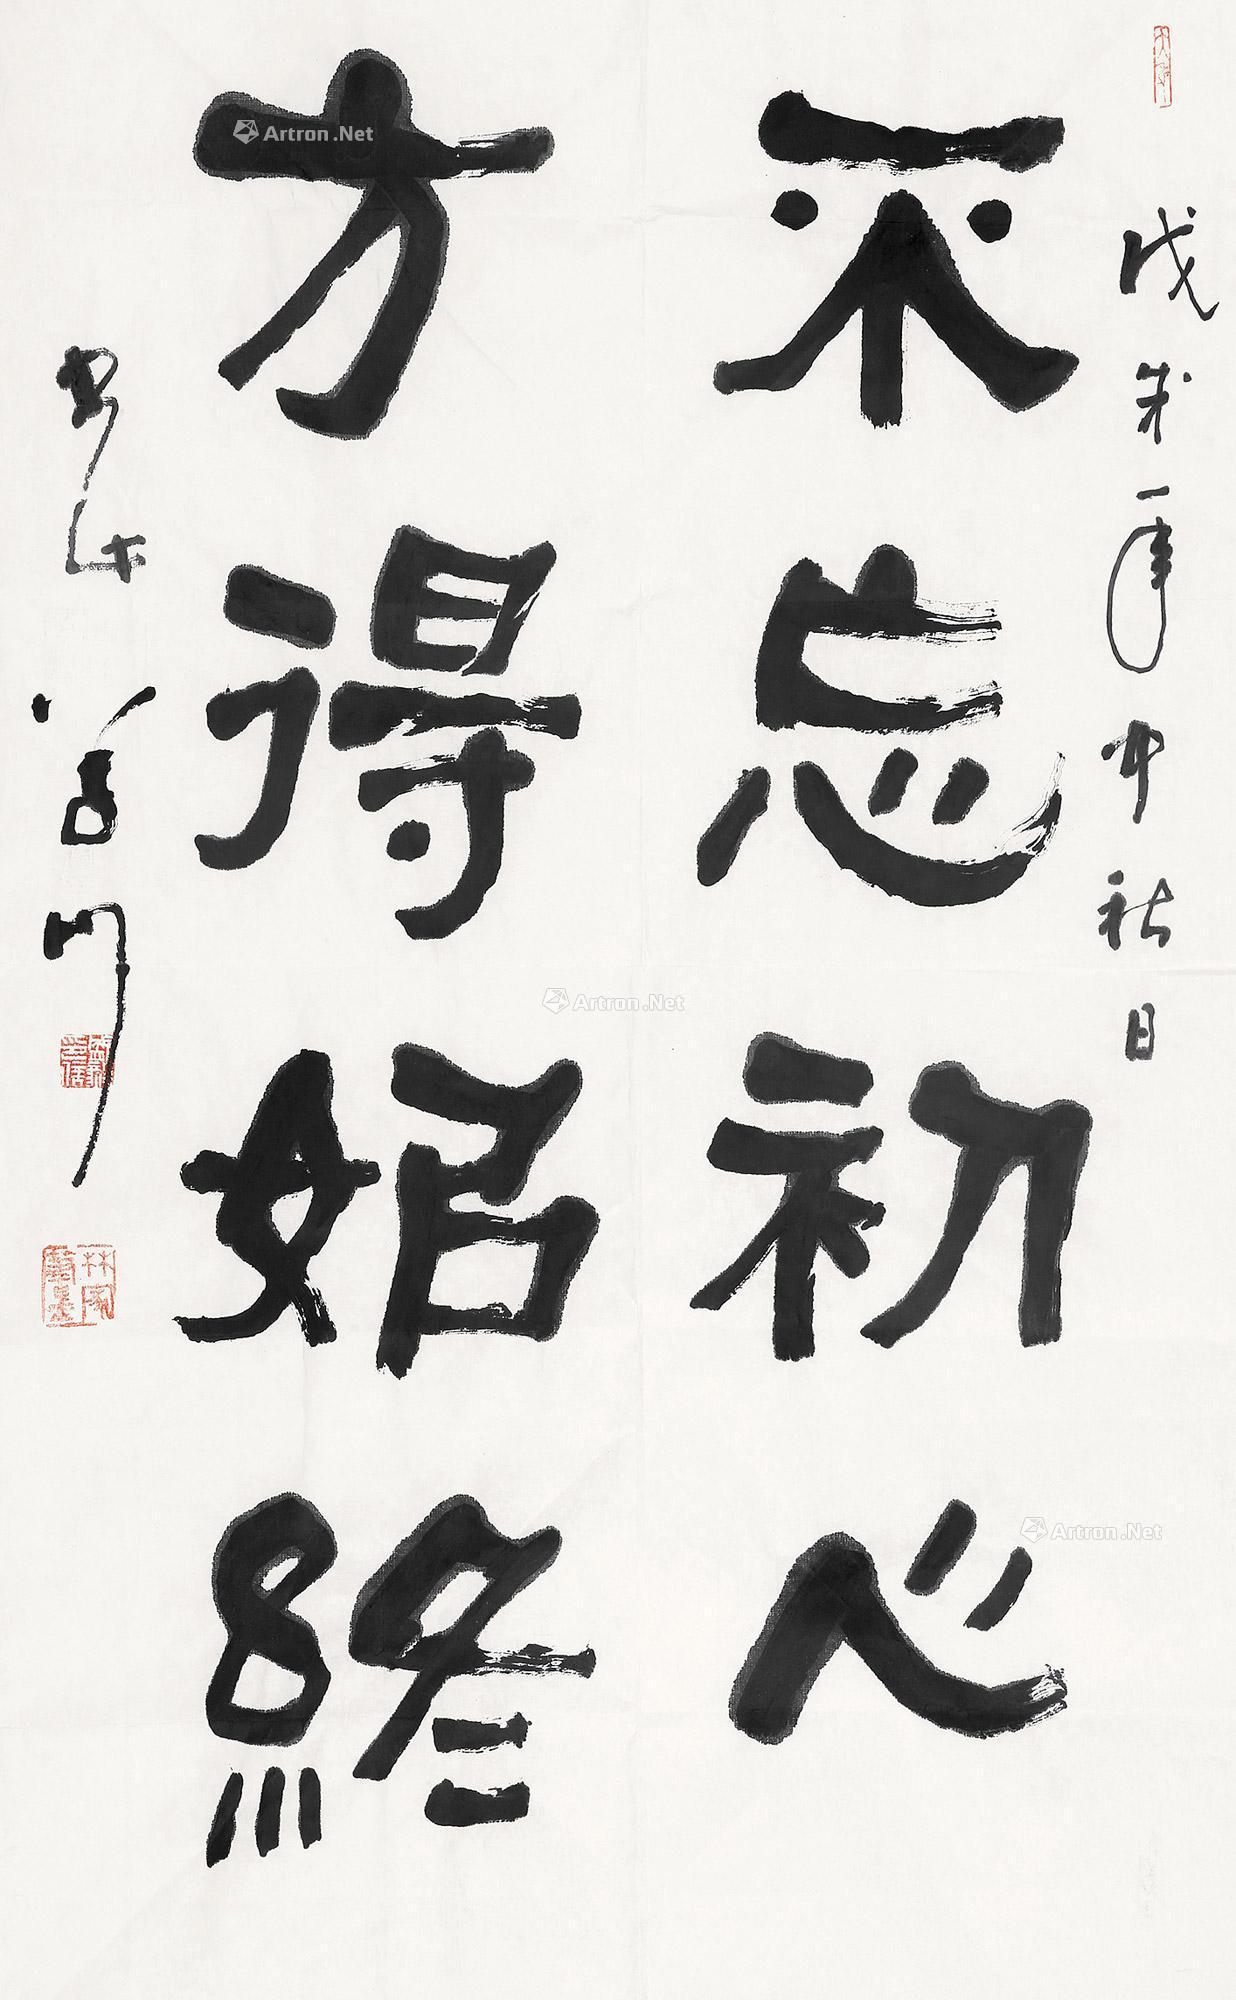 戊戌年中秋日
不忘初心
方得始終
Artron.Net
Artron.Net
Artron.Net